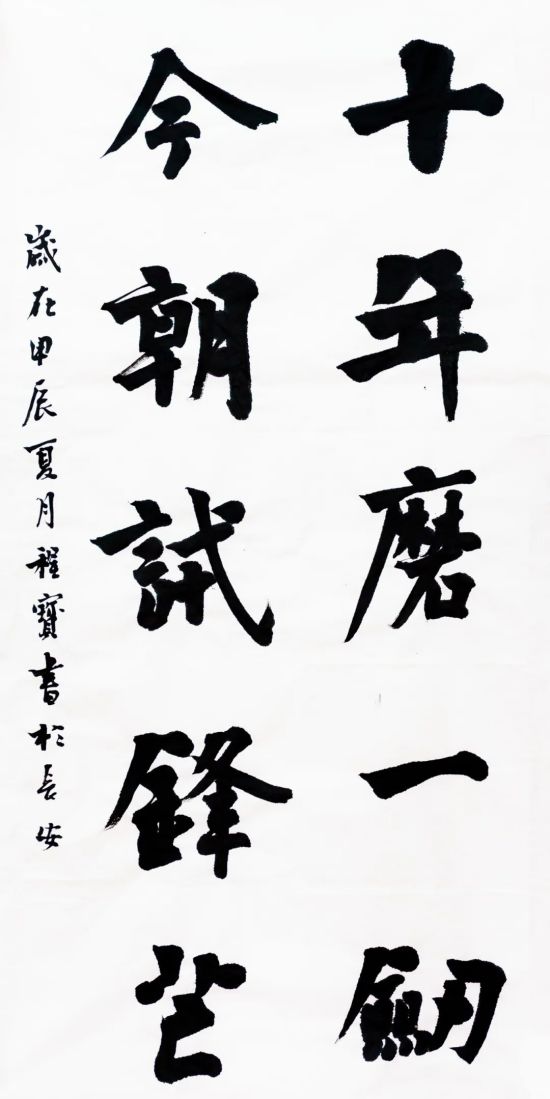 十年磨一劒
今朝試鋒芒
歲在甲辰夏月程寶書於長安